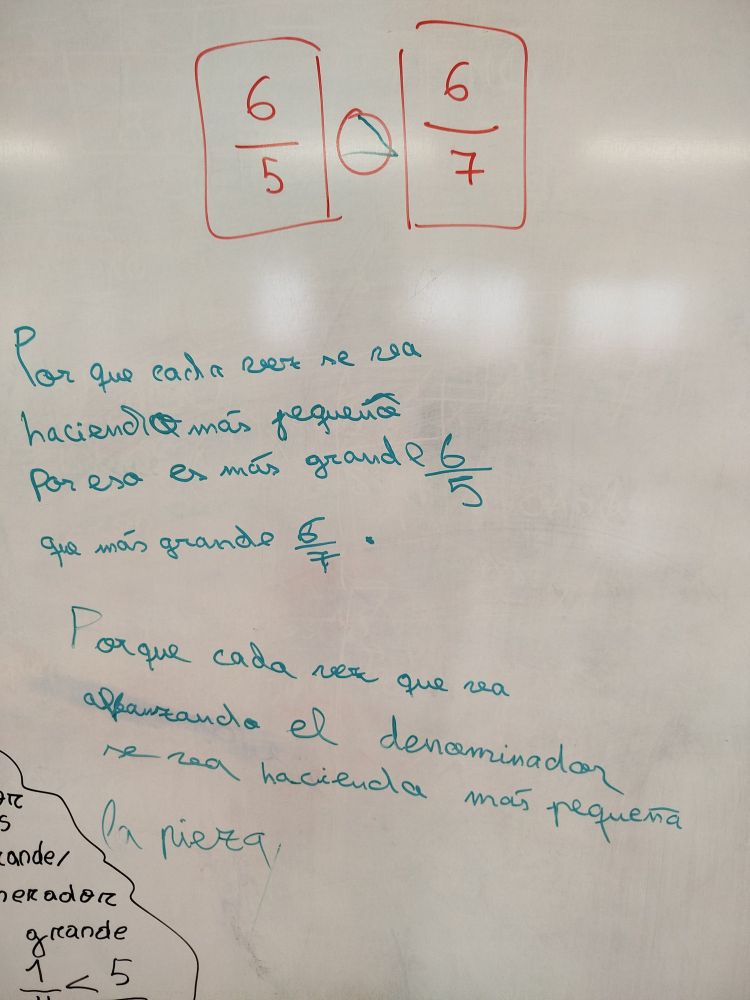 6/5 > 6/7
Por que cada vez se vea
haciendo más pequeña
por eso es más grande 6/5
que más grande 6/7 .
Porque cada vez que vea
el denominador
se vea hacienda más pequeña
la pieza,
or
s
rande/
nerador
grande
1 < 5